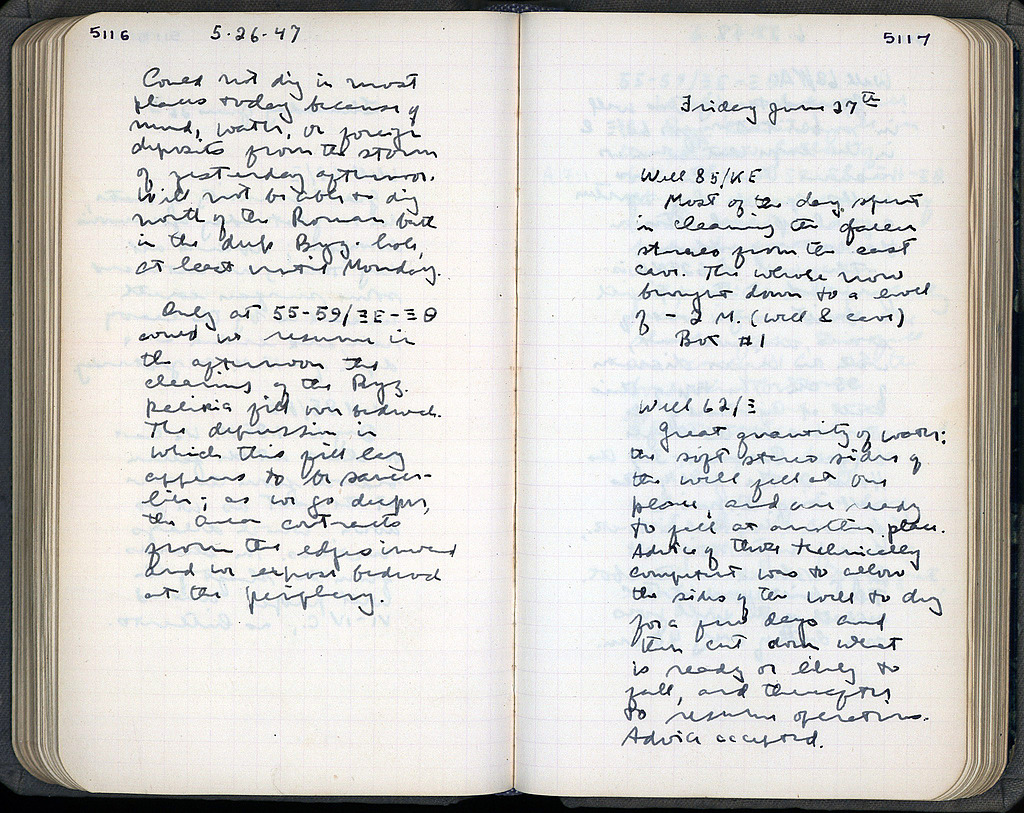 5116 5-26-47
Could not dig in most
places today because of
mud, water, or foreign
deposits from the storm
of yesterday afternoon.
Will not be able to dig
north of the Roman bath
in the deep Byz. hole,
at least until Monday.
Only at 55-59/ΞΕ-ΞΘ
could we resume in
the afternoon the
clearing of the Byz.
fill over bedrock.
The depression in
which this fill lay
appears to be saucer-
like; as we go deeper,
the area contracts
from the edges inward
and we expose bedrock
at the periphery.
5117
Friday June 27th
Well 85/ΚΕ
Most of the day spent
in clearing the fallen
stereo from the east
cave. The whole now
brought down to a level
of - 2 M. (well & cave)
Box #1
Well 62/Ξ
Great quantity of water:
the soft stereo sides of
the well fell at one
place, and are ready
to fall at another place.
Advice of those technically
competent was to allow
the sides of the well to dry
for a few days and
then cut down what
is ready or likely to
fall, and thereafter
to resume operations.
Advice accepted.